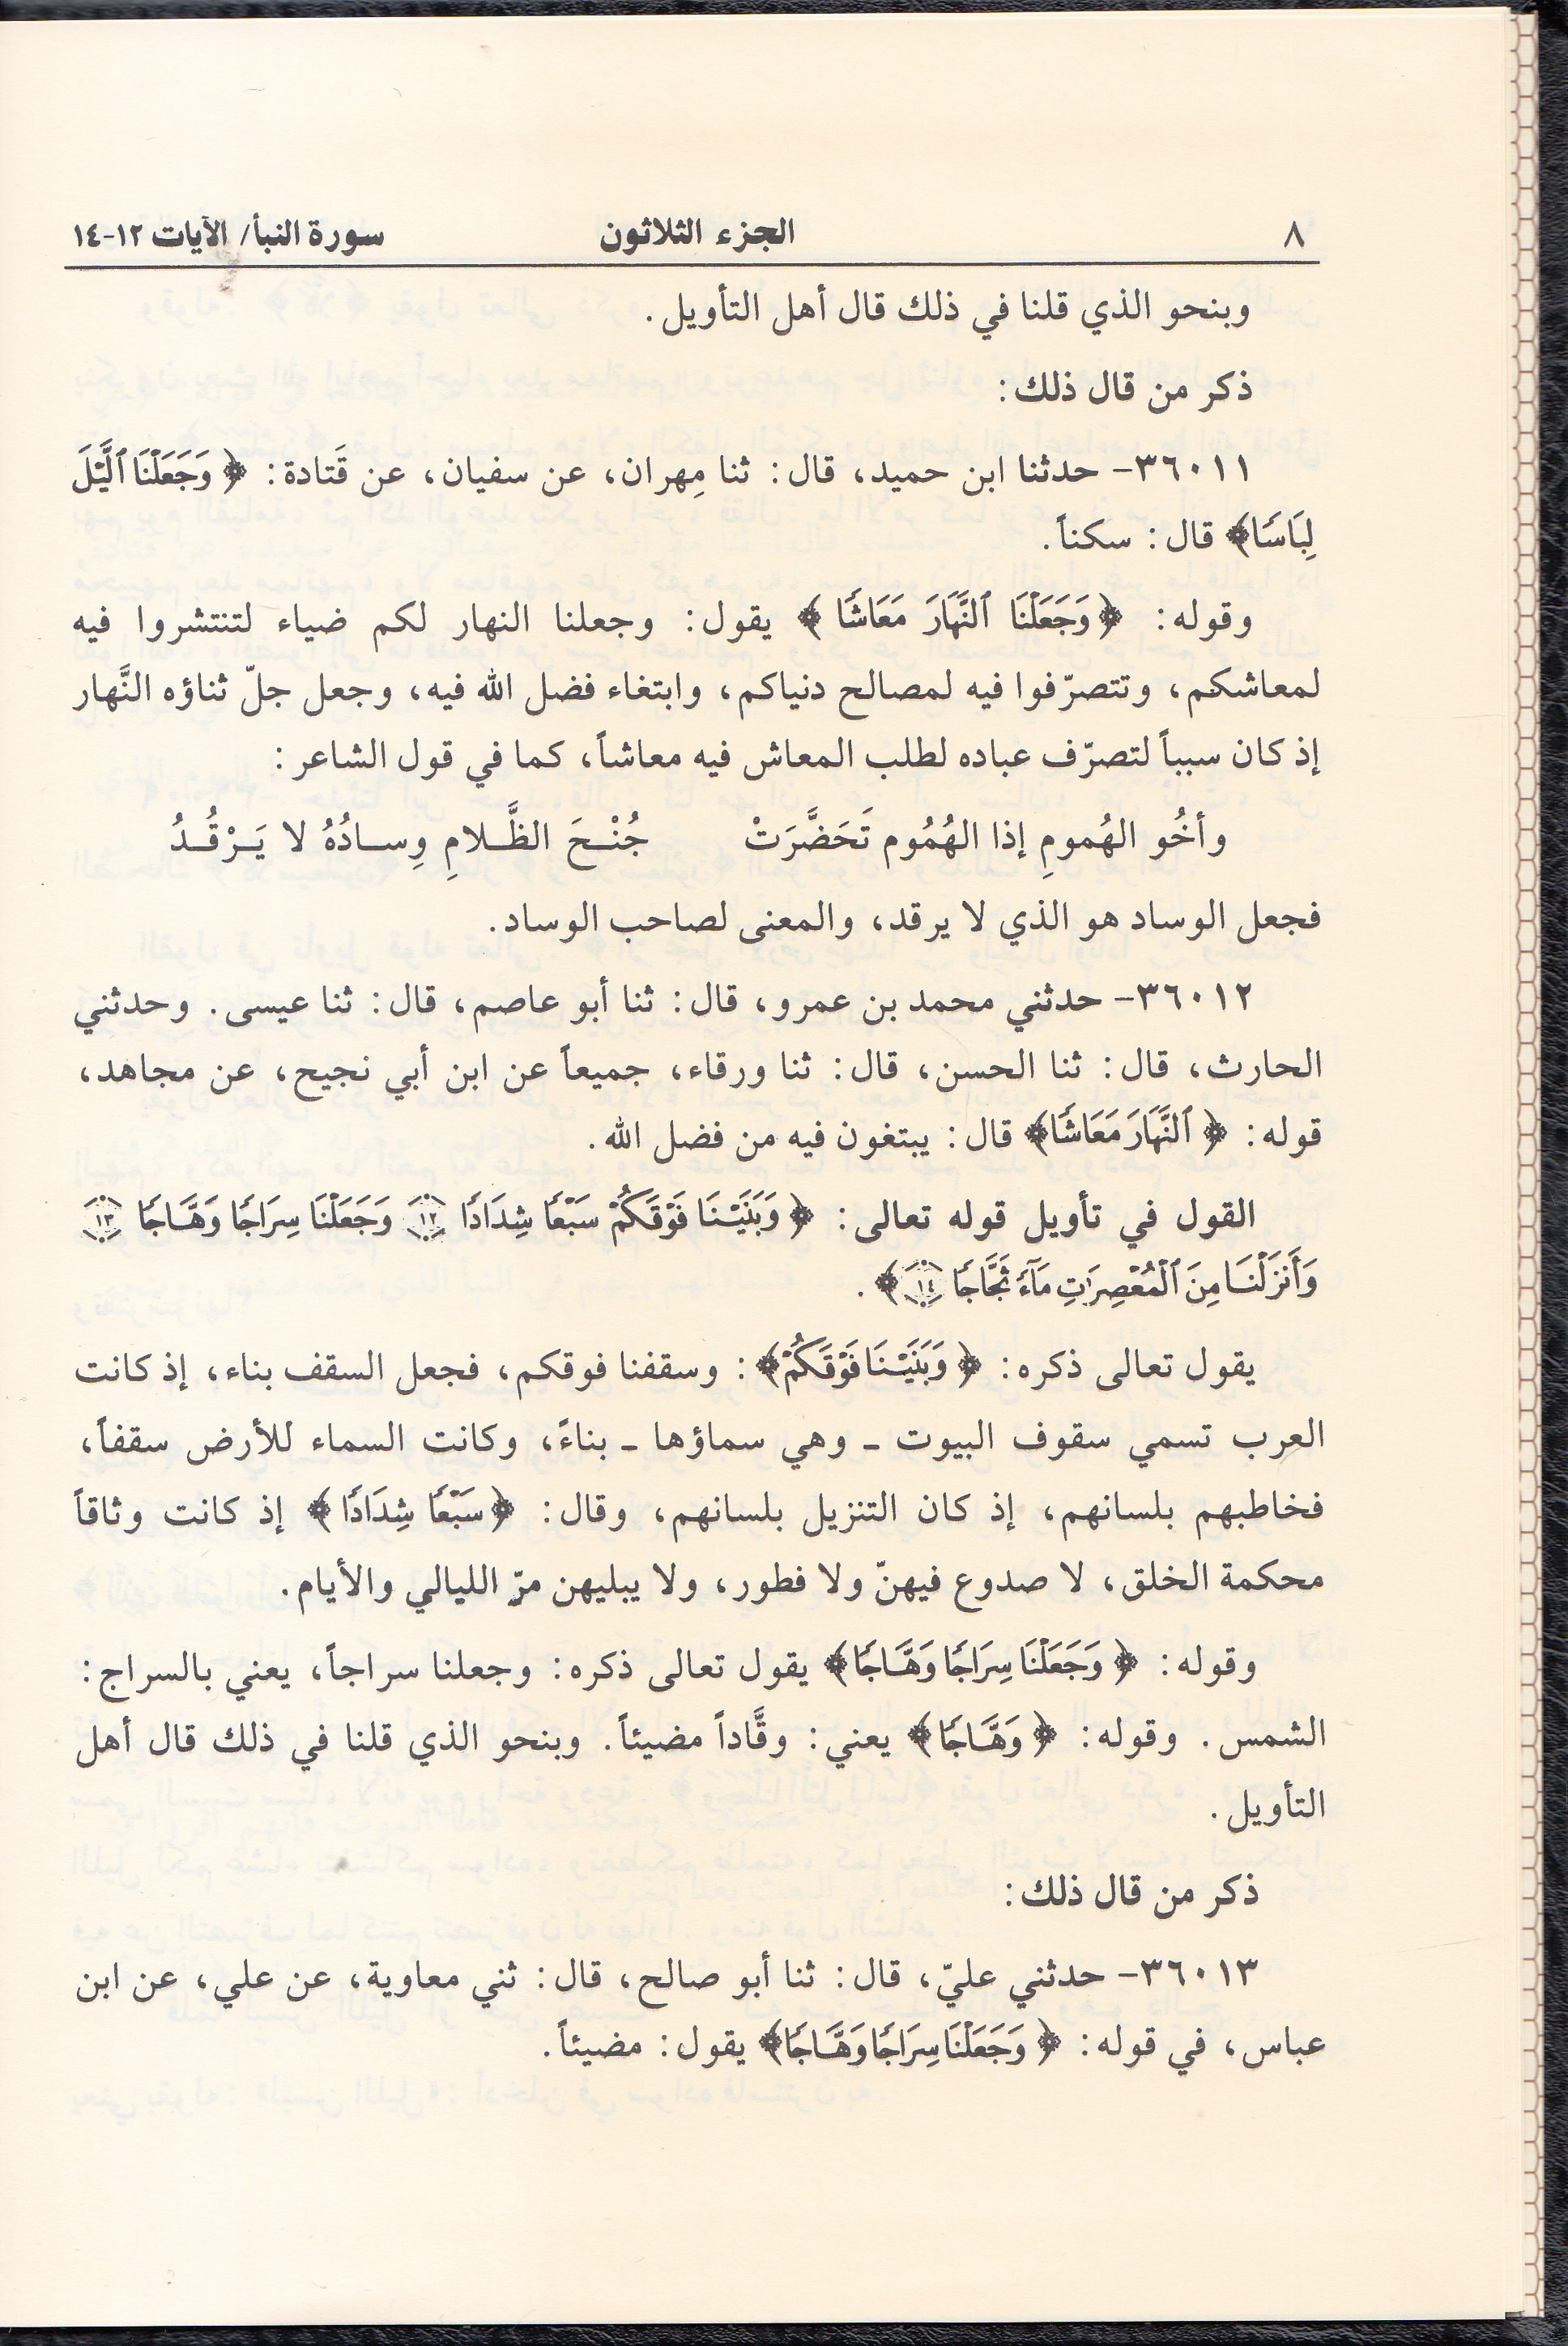 ٨ الجزء الثلاثون سورة النبأ/ الآيات ١٢-١٤
وبنحو الذي قلنا في ذلك قال أهل التأويل.
ذكر من قال ذلك:
٣٦٠١١- حدثنا ابن حميد، قال: ثنا مِهران، عن سفيان، عن قَتادة: ﴿وَجَعَلْنَا ٱلَّيْلَ
لِبَاسًا﴾ قال: سكناً.
وقوله: ﴿وَجَعَلْنَا ٱلنَّهَارَ مَعَاشًا﴾ يقول: وجعلنا النهار لكم ضياء لتنتشروا فيه
لمعاشكم، وتتصرّفوا فيه لمصالح دنياكم، وابتغاء فضل الله فيه، وجعل جلّ ثناؤه النَّهار
إذ كان سبباً لتصرّف عباده لطلب المعاش فيه معاشاً، كما في قول الشاعر:
وأخُو الهُمومِ إذا الهُمُوم تَحَضَّرَتْ جُنْحَ الظَّلامِ وِسادُهُ لا يَرْقُدُ
فجعل الوساد هو الذي لا يرقد، والمعنى لصاحب الوساد.
٣٦٠١٢- حدثني محمد بن عمرو، قال: ثنا أبو عاصم، قال: ثنا عيسى. وحدثني
الحارث، قال: ثنا الحسن، قال: ثنا ورقاء، جميعاً عن ابن أبي نجيح، عن مجاهد،
قوله: ﴿ٱلنَّهَارَ مَعَاشًا﴾ قال: يبتغون فيه من فضل الله.
القول في تأويل قوله تعالى: ﴿وَبَنَيْنَا فَوْقَكُمْ سَبْعًا شِدَادًا ١٢ وَجَعَلْنَا سِرَاجًا وَهَّاجًا ١٣
وَأَنزَلْنَا مِنَ ٱلْمُعْصِرَٰتِ مَآءً ثَجَّاجًا ١٤﴾.
يقول تعالى ذكره: ﴿وَبَنَيْنَا فَوْقَكُمْ﴾: وسقفنا فوقكم، فجعل السقف بناء، إذ كانت
العرب تسمي سقوف البيوت ـ وهي سماؤها ـ بناءً، وكانت السماء للأرض سقفاً،
فخاطبهم بلسانهم، إذ كان التنزيل بلسانهم، وقال: ﴿سَبْعًا شِدَادًا﴾ إذ كانت وثاقاً
محكمة الخلق، لا صدوع فيهنّ ولا فطور، ولا يبليهن مرّ الليالي والأيام.
وقوله: ﴿وَجَعَلْنَا سِرَاجًا وَهَّاجًا﴾ يقول تعالى ذكره: وجعلنا سراجاً، يعني بالسراج:
الشمس. وقوله: ﴿وَهَّاجًا﴾ يعني: وقَّاداً مضيئاً. وبنحو الذي قلنا في ذلك قال أهل
التأويل.
ذكر من قال ذلك:
٣٦٠١٣- حدثني عليّ، قال: ثنا أبو صالح، قال: ثني معاوية، عن علي، عن ابن
عباس، في قوله: ﴿وَجَعَلْنَا سِرَاجًا وَهَّاجًا﴾ يقول: مضيئاً.